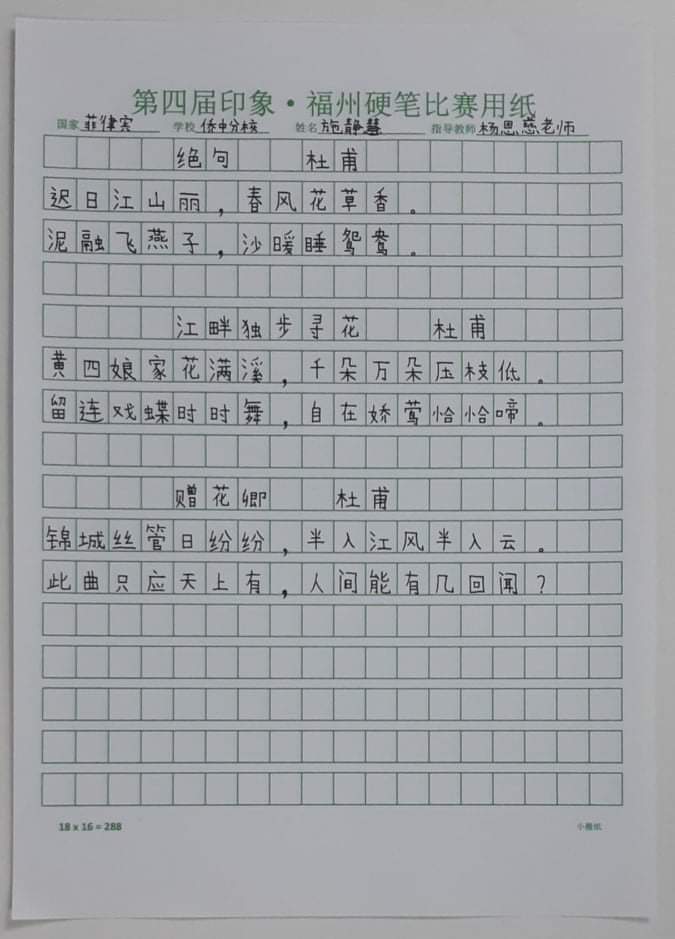 第四届印象·福州硬笔比赛用纸
国家 菲律宾 学校 侨中分校 姓名 施静慧 指导教师 杨思慈老师
绝句 杜甫
迟日江山丽，春风花草香。
泥融飞燕子，沙暖睡鸳鸯。
江畔独步寻花 杜甫
黄四娘家花满溪，千朵万朵压枝低。
留连戏蝶时时舞，自在娇莺恰恰啼。
赠花卿 杜甫
锦城丝管日纷纷，半入江风半入云。
此曲只应天上有，人间能有几回闻？
18 x 16 = 288 小雅纸